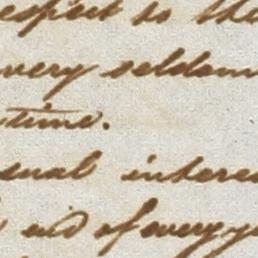 espect to the
very seldom
time.
usual interes
end of every y